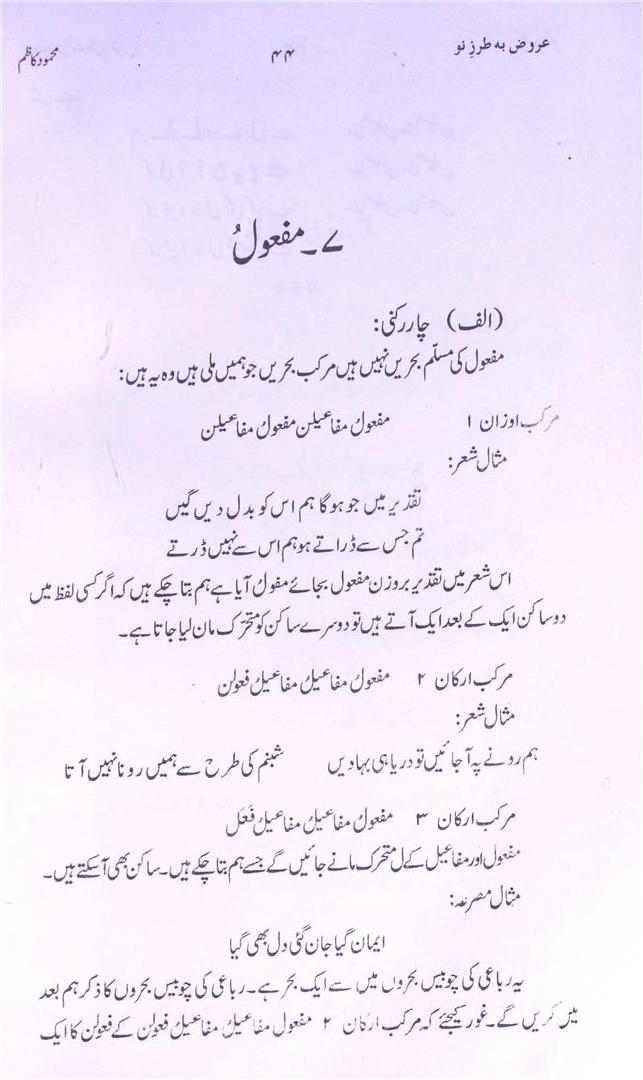 عروض بہ طرزِ نو ۴۴ محمود کاظم
۷۔ مفعولُ
(الف) چار رکنی:
مفعول کی مسلّم بحریں نہیں ہیں مرکب بحریں جو ہمیں ملی ہیں وہ یہ ہیں:
مرکب اوزان ۱ مفعولُ مفاعیلن مفعولُ مفاعیلن
مثال شعر:
تقدیر میں جو ہوگا ہم اس کو بدل دیں گیں
تم جس سے ڈراتے ہو ہم اس سے نہیں ڈرتے
اس شعر میں تقدیر بروزن مفعول بجائے مفولُ آیا ہے ہم بتا چکے ہیں کہ اگر کسی لفظ میں
دو ساکن ایک کے بعد ایک آتے ہیں تو دوسرے ساکن کو متحرّک مان لیا جاتا ہے۔
مرکب ارکان ۲ مفعولُ مفاعیلُ مفاعیلُ فعولن
مثال شعر:
ہم رونے پہ آجائیں تو دریا ہی بہادیں شبنم کی طرح سے ہمیں رونا نہیں آتا
مرکب ارکان ۳ مفعولُ مفاعیلُ مفاعیلُ فَعَل
مفعول اور مفاعیل کے ل متحرک مانے جائیں گے جسے ہم بتا چکے ہیں۔ ساکن بھی آسکتے ہیں۔
مثال مصرعہ:
ایمان گیا جان گئی دل بھی گیا
یہ رباعی کی چوبیس بحروں میں سے ایک بحر ہے۔ رباعی کی چوبیس بحروں کا ذکر ہم بعد
میں کریں گے۔ غور کیجئے کہ مرکب ارکان ۲ مفعول مفاعیلُ مفاعیلُ فعولن کے فعولن کا ایک